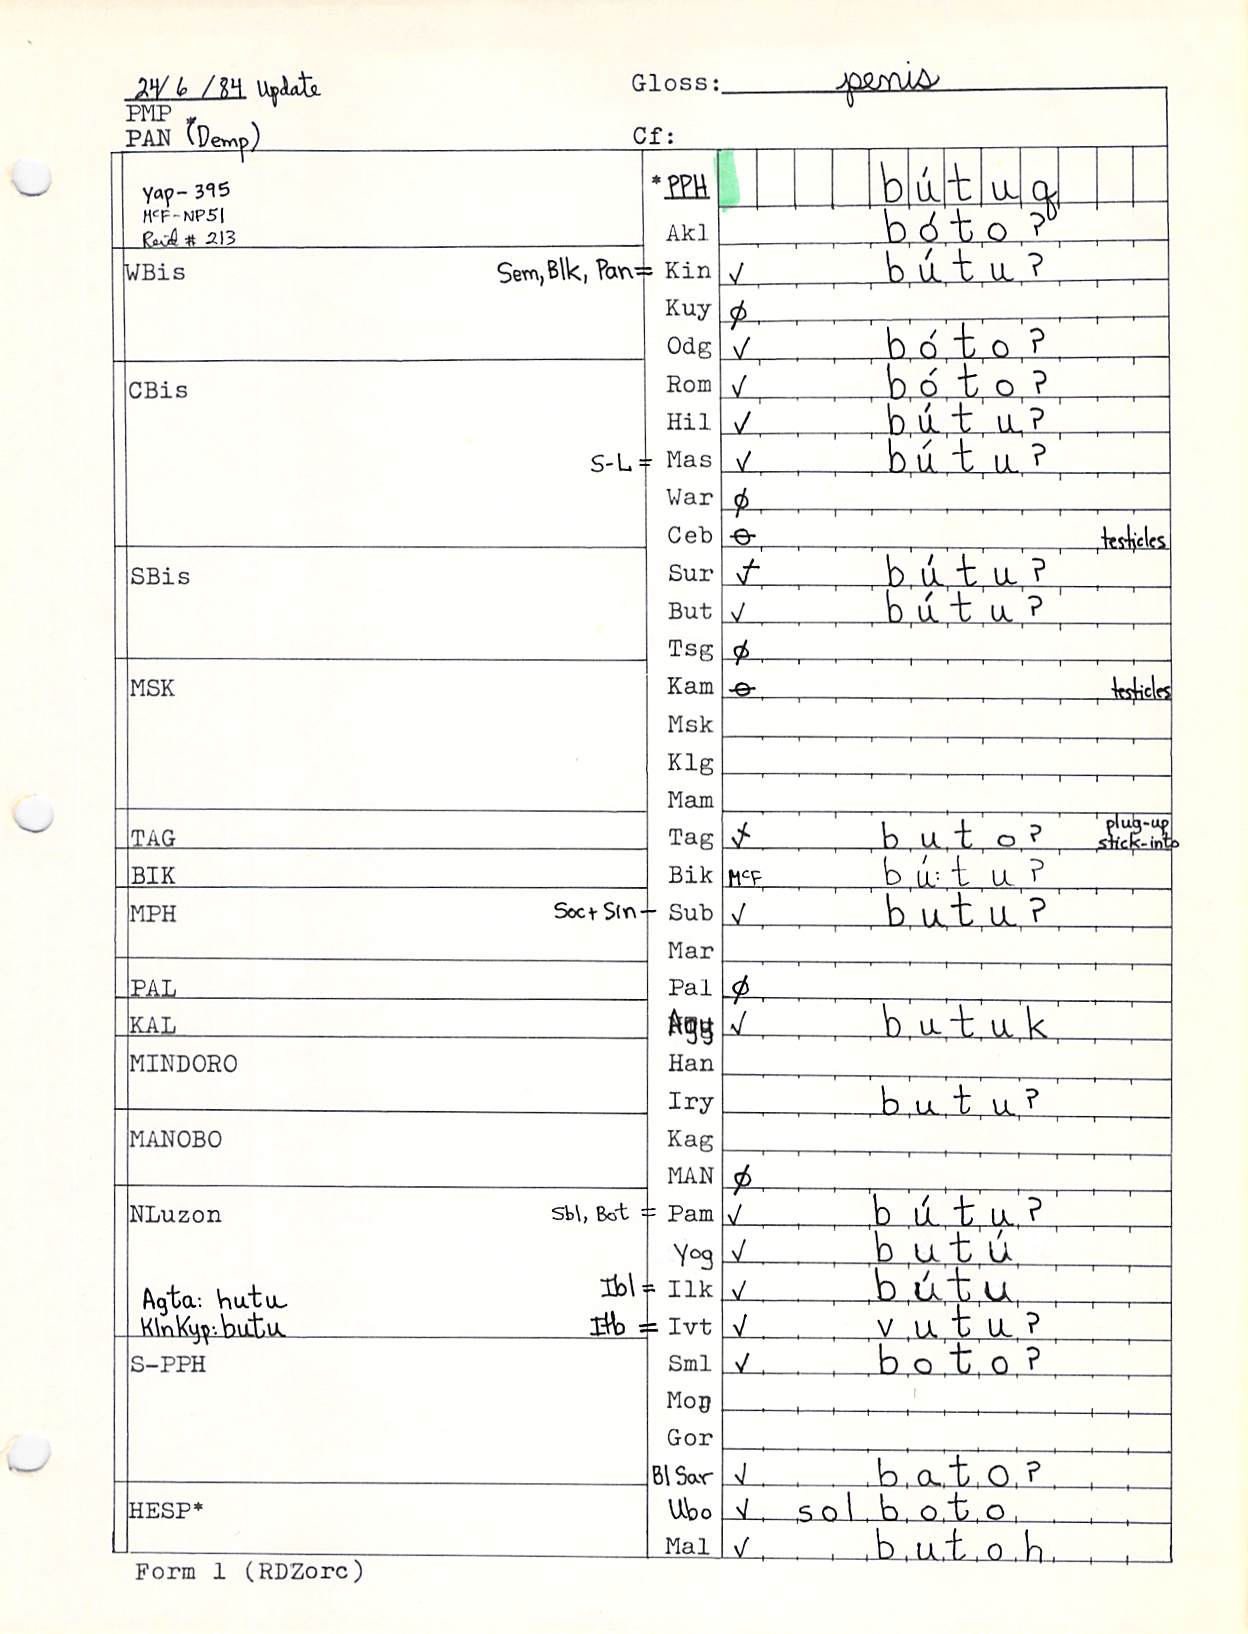 24/6/84 Update
Gloss: penis
PMP
PAN *(Demp)
Cf:
Yap-395
McF-NP51
Reid # 213
*PPH bútuq
Akl bóto?
WBis Sem, Blk, Pan= Kin ✓ bútu?
Kuy ∅
Odg ✓ bóto?
CBis Rom ✓ bóto?
Hil ✓ bútu?
S-L = Mas ✓ bútu?
War ∅
Ceb ⊖ testicles
SBis Sur bútu?
But ✓ bútu?
Tsg ∅
MSK Kam ⊖ testicles
Msk
Klg
Mam
TAG Tag buto? plug-up stick-into
BIK Bik McF bú:tu?
MPH Soc+ Sin- Sub ✓ butu?
Mar
PAL Pal ∅
KAL ✓ butuk
MINDORO Han
Iry butu?
MANOBO Kag
MAN ∅
NLuzon Sbl, Bot = Pam ✓ bútu?
Yog ✓ butú
Agta: hutu Ibl = Ilk ✓ bútu
KlnKyp: butu Itb = Ivt ✓ vutu?
S-PPH Sml ✓ boto?
Moŋ
Gor
BlSar ✓ bato?
HESP* Ubo ✓ sol boto
Mal ✓ butoh
Form 1 (RDZorc)